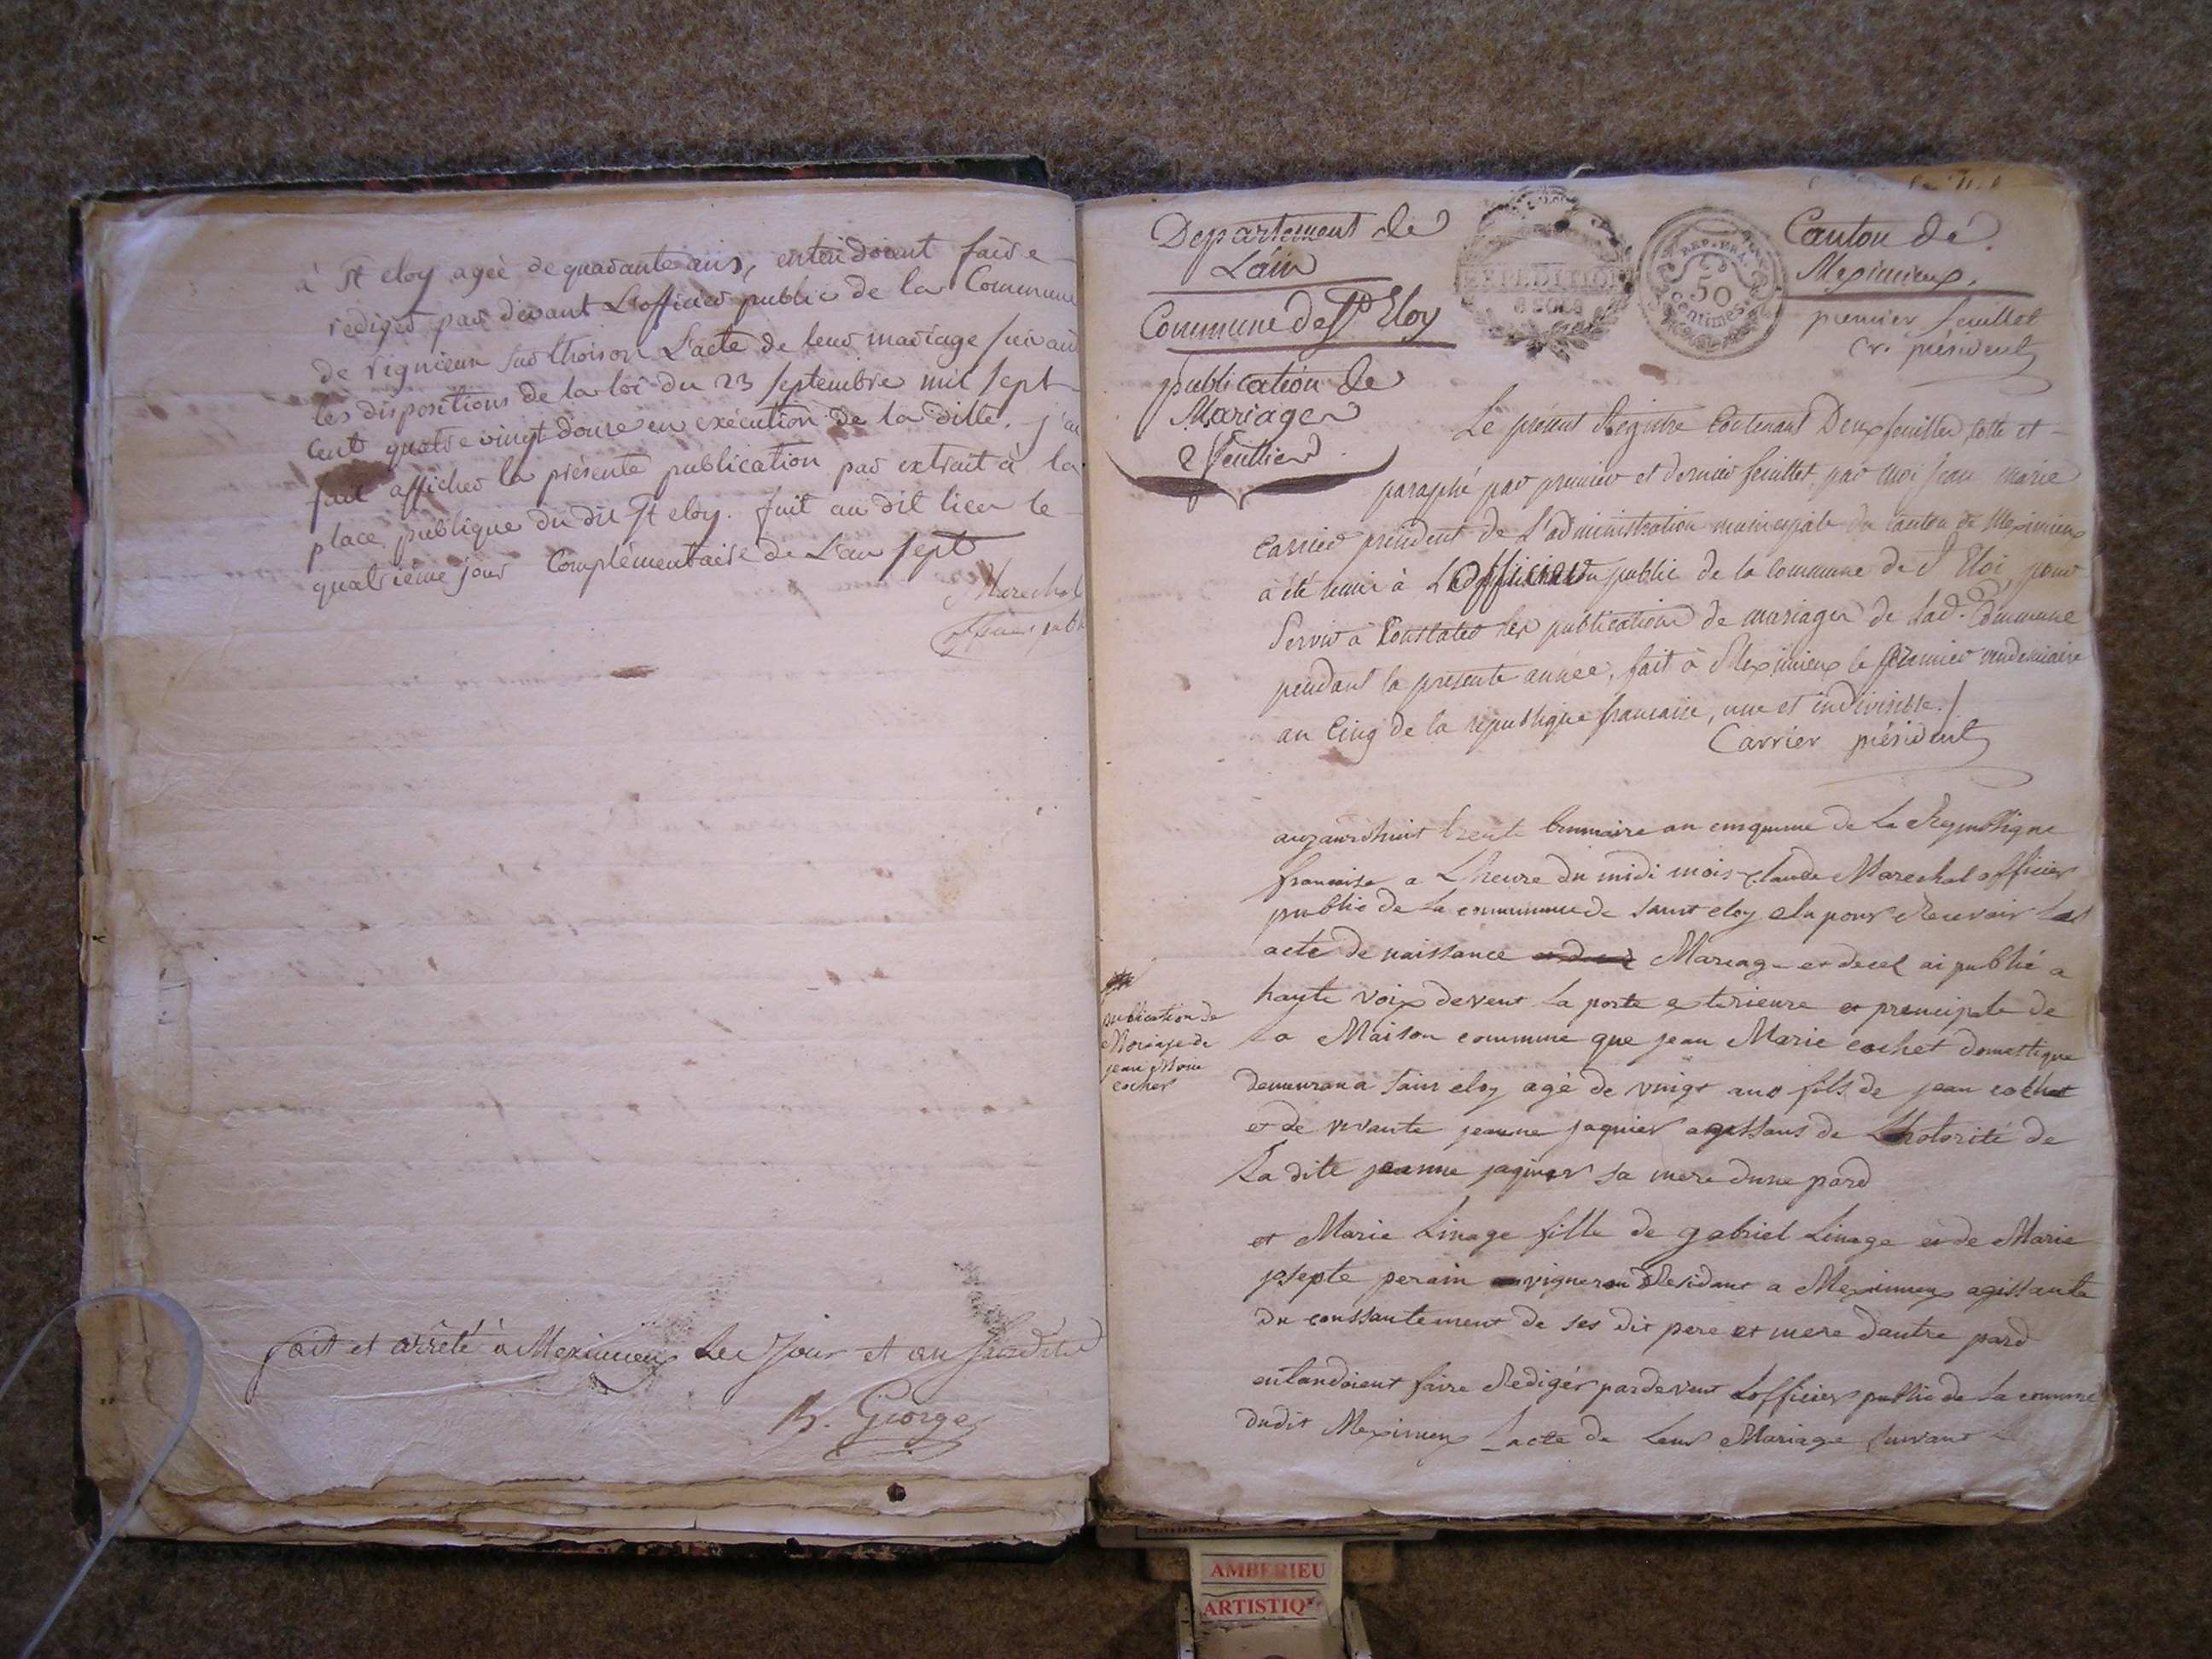 à St eloy ageé de quarante ans, entendoient faire
rediger par devant L'officier public de la Commune
de rignieux sur Choison L'acte de leur mariage suivant
les dispositions de la loi du 23 septembre mil sept
Cent quatre vingt douze en exécution de la ditte. j'ai
fait afficher la présente publication par extrait à la
place publique du dit St eloy. fait au dit lieu le
quatrième jour Complémentaire de L'an sept
Marechal
officier publ
fait et arrêté à Meximieux Les Jour et an susdits
B. George
Departement de
Lain
Commune de St Eloy
publication de
Mariages
2 feuilles
EXPEDITION
6 SOLS
REP. FRA.
50
Centimes
Canton de
Meximieux.
premier feuillet
Cr. président
Le présent Registre Contenant Deux feuilles cotté et
paraphé par premier et dernier feuillet, par moi Jean marie
Carrier président de L'administration municipale du canton de Meximieux
a été remis à L'officier public de la commune de St Eloi, pour
servir à Constater les publications de mariages de lad. Commune
pendant la presente année, fait à Meximieux le premier vendemiaire
an Cinq de la république francaise, une et indivisible./
Carrier président
aujourdhuit trente brumaire an cinquieme de La Republique
francaise a Lheure du midi mois claude Marechal officier
public de La commune de saint eloy elu pour Recevoir Les
acte de naissance Mariage et decel ai publié a
haute voix devent La porte exterieure et principale de
La Maison commune que jean Marie cochet domestique
demeuran a sain eloy agé de vingt ans fils de jean cochet
et de vivante jeanne jaquier agissans de Lhotorité de
La dite jeanne jaquier sa mere dune pard
publication de
Mariage de
jean Marie
cochet
et Marie Linage fille de gabriel Linage et de Marie
josepte perain vigneron Residant a Meximieux agissante
du conssantement de ses dit pere et mere dautre pard
entandoient faire Redigér pardevent Lofficier public de La commune
dudit Meximieux Lacte de Leur Mariage suivant